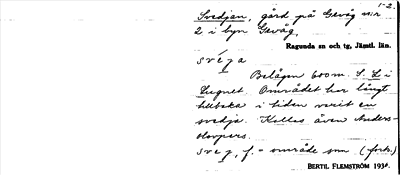 1-2.
Svedjan, gård på Gevåg n:r
2 i byn Gevåg,
Ragunda sn och tg, Jämtl. län.
svéʒa
Belägen 600 m. S. L i
Lugnet. Området har långt
tillbaka i tiden varit en
svedja. Kallas även Anders-
Olovpers.
sveʒ, f. = område som (forts.)
BERTIL FLEMSTRÖM 193